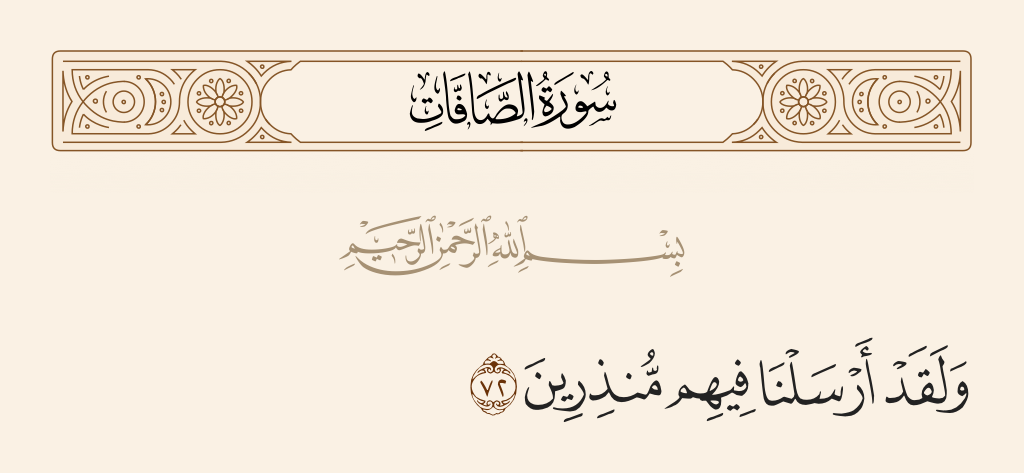 سُورَةُ الصَّافَّاتِ
بِسْمِ ٱللَّهِ ٱلرَّحْمَٰنِ ٱلرَّحِيمِ
وَلَقَدْ أَرْسَلْنَا فِيهِم مُّنذِرِينَ ٧٢